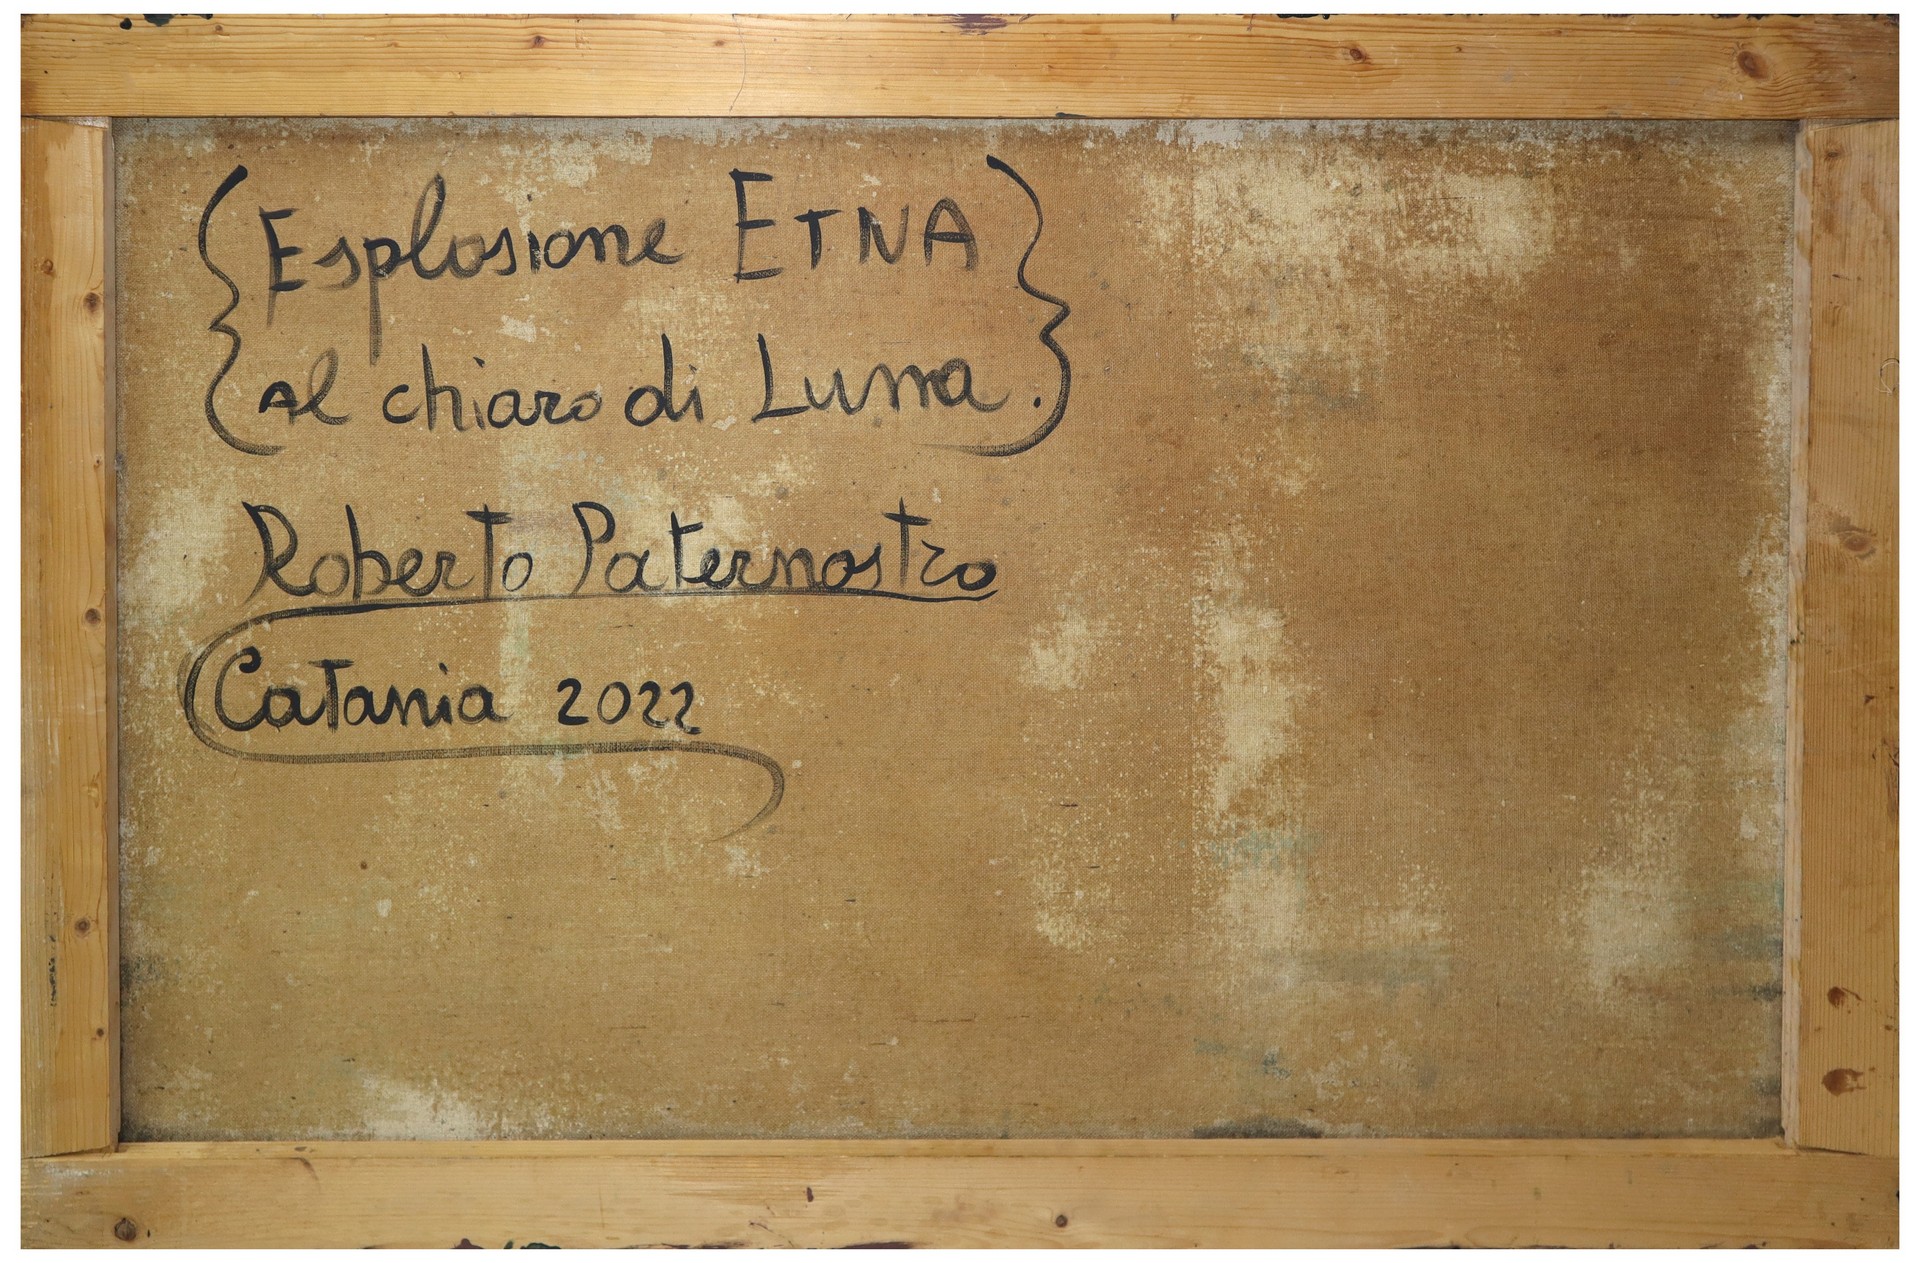 Esplosione ETNA
Al chiaro di Luna.
Roberto Paternostro
Catania 2022